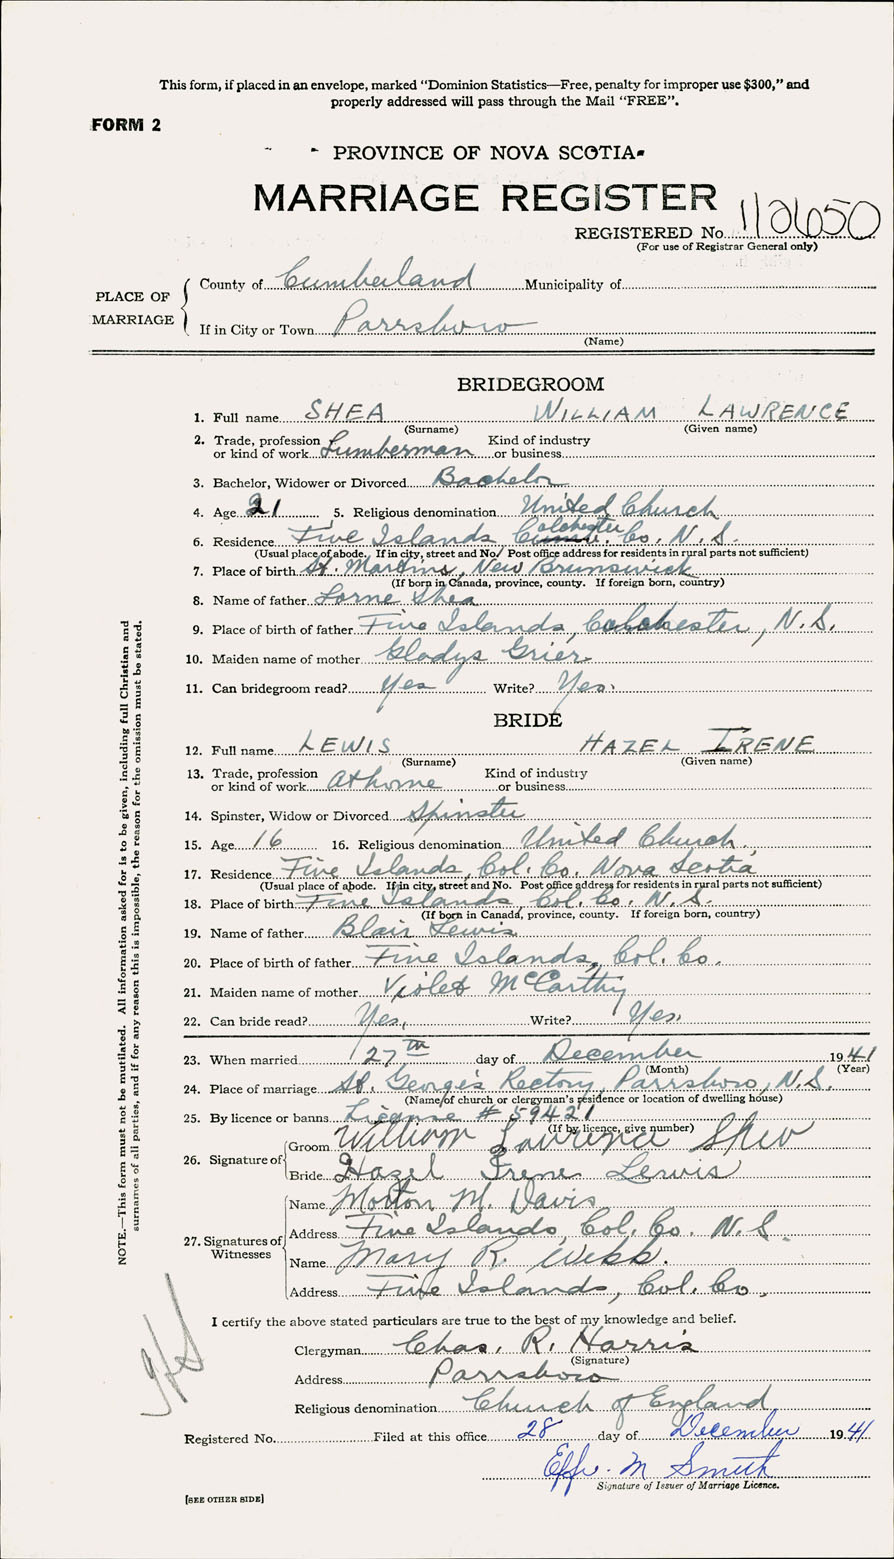 This form, if placed in an envelope, marked “Dominion Statistics—Free, penalty for improper use $300,” and
properly addressed will pass through the Mail “FREE”.
FORM 2
PROVINCE OF NOVA SCOTIA
MARRIAGE REGISTER
REGISTERED No. 112650
(For use of Registrar General only)
PLACE OF MARRIAGE
County of Cumberland Municipality of
If in City or Town Parrsboro
(Name)
BRIDEGROOM
1. Full name SHEA WILLIAM LAWRENCE
(Surname) (Given name)
2. Trade, profession or kind of work Lumberman Kind of industry or business
3. Bachelor, Widower or Divorced Bachelor
4. Age 21 5. Religious denomination United Church
6. Residence Five Islands Colchester Co. N.S.
(Usual place of abode. If in city, street and No. Post office address for residents in rural parts not sufficient)
7. Place of birth St. Martins, New Brunswick
(If born in Canada, province, county. If foreign born, country)
8. Name of father Lorne Shea
9. Place of birth of father Five Islands, Colchester, N.S.
10. Maiden name of mother Gladys Grier
11. Can bridegroom read? Yes Write? Yes.
BRIDE
12. Full name LEWIS HAZEL IRENE
(Surname) (Given name)
13. Trade, profession or kind of work at home Kind of industry or business
14. Spinster, Widow or Divorced Spinster
15. Age 16 16. Religious denomination United Church.
17. Residence Five Islands, Col. Co. Nova Scotia
(Usual place of abode. If in city, street and No. Post office address for residents in rural parts not sufficient)
18. Place of birth Five Islands, Col. Co. N.S.
(If born in Canada, province, county. If foreign born, country)
19. Name of father Blair Lewis
20. Place of birth of father Five Islands, Col. Co.
21. Maiden name of mother Violet McCarthy
22. Can bride read? Yes, Write? Yes.
23. When married 27th day of December 1941
(Month) (Year)
24. Place of marriage St. George's Rectory, Parrsboro, N.S.
(Name of church or clergyman's residence or location of dwelling house)
25. By licence or banns License # 59421
(If by licence, give number)
26. Signature of
Groom William Lawrence Shea
Bride Hazel Irene Lewis
27. Signatures of Witnesses
Name Morton M. Davis
Address Five Islands, Col. Co. N.S.
Name Mary R. Webb.
Address Five Islands, Col. Co.
I certify the above stated particulars are true to the best of my knowledge and belief.
Clergyman Chas. R. Harris
(Signature)
Address Parrsboro
Religious denomination Church of England
Registered No. Filed at this office 28 day of December 1941
Effie M Smith
Signature of Issuer of Marriage Licence.
[SEE OTHER SIDE]
NOTE.—This form must not be mutilated. All information asked for is to be given, including full Christian and
surnames of all parties, and if for any reason this is impossible, the reason for the omission must be stated.